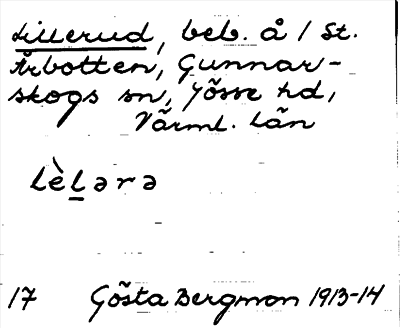 Lillerud, beb. å / St.
Årbotten, Gunnar-
skogs sn, Jösse hd,
Värml. län
lèḻərə
17 Gösta Bergman 1913-14